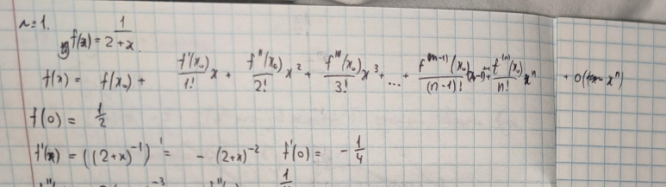 n=1.
f(x) = 1/(2+x)
f(x) = f(x₀) + f'(x₀)/1! x + f''(x₀)/2! x² + f'''(x₀)/3! x³ + ... + f⁽ⁿ⁻¹⁾(x₀)/(n-1)! + f⁽ⁿ⁾(x₀)/n! xⁿ + o(xⁿ)
f(0) = 1/2
f'(x) = ((2+x)⁻¹)' = - (2+x)⁻² f'(0) = - 1/4